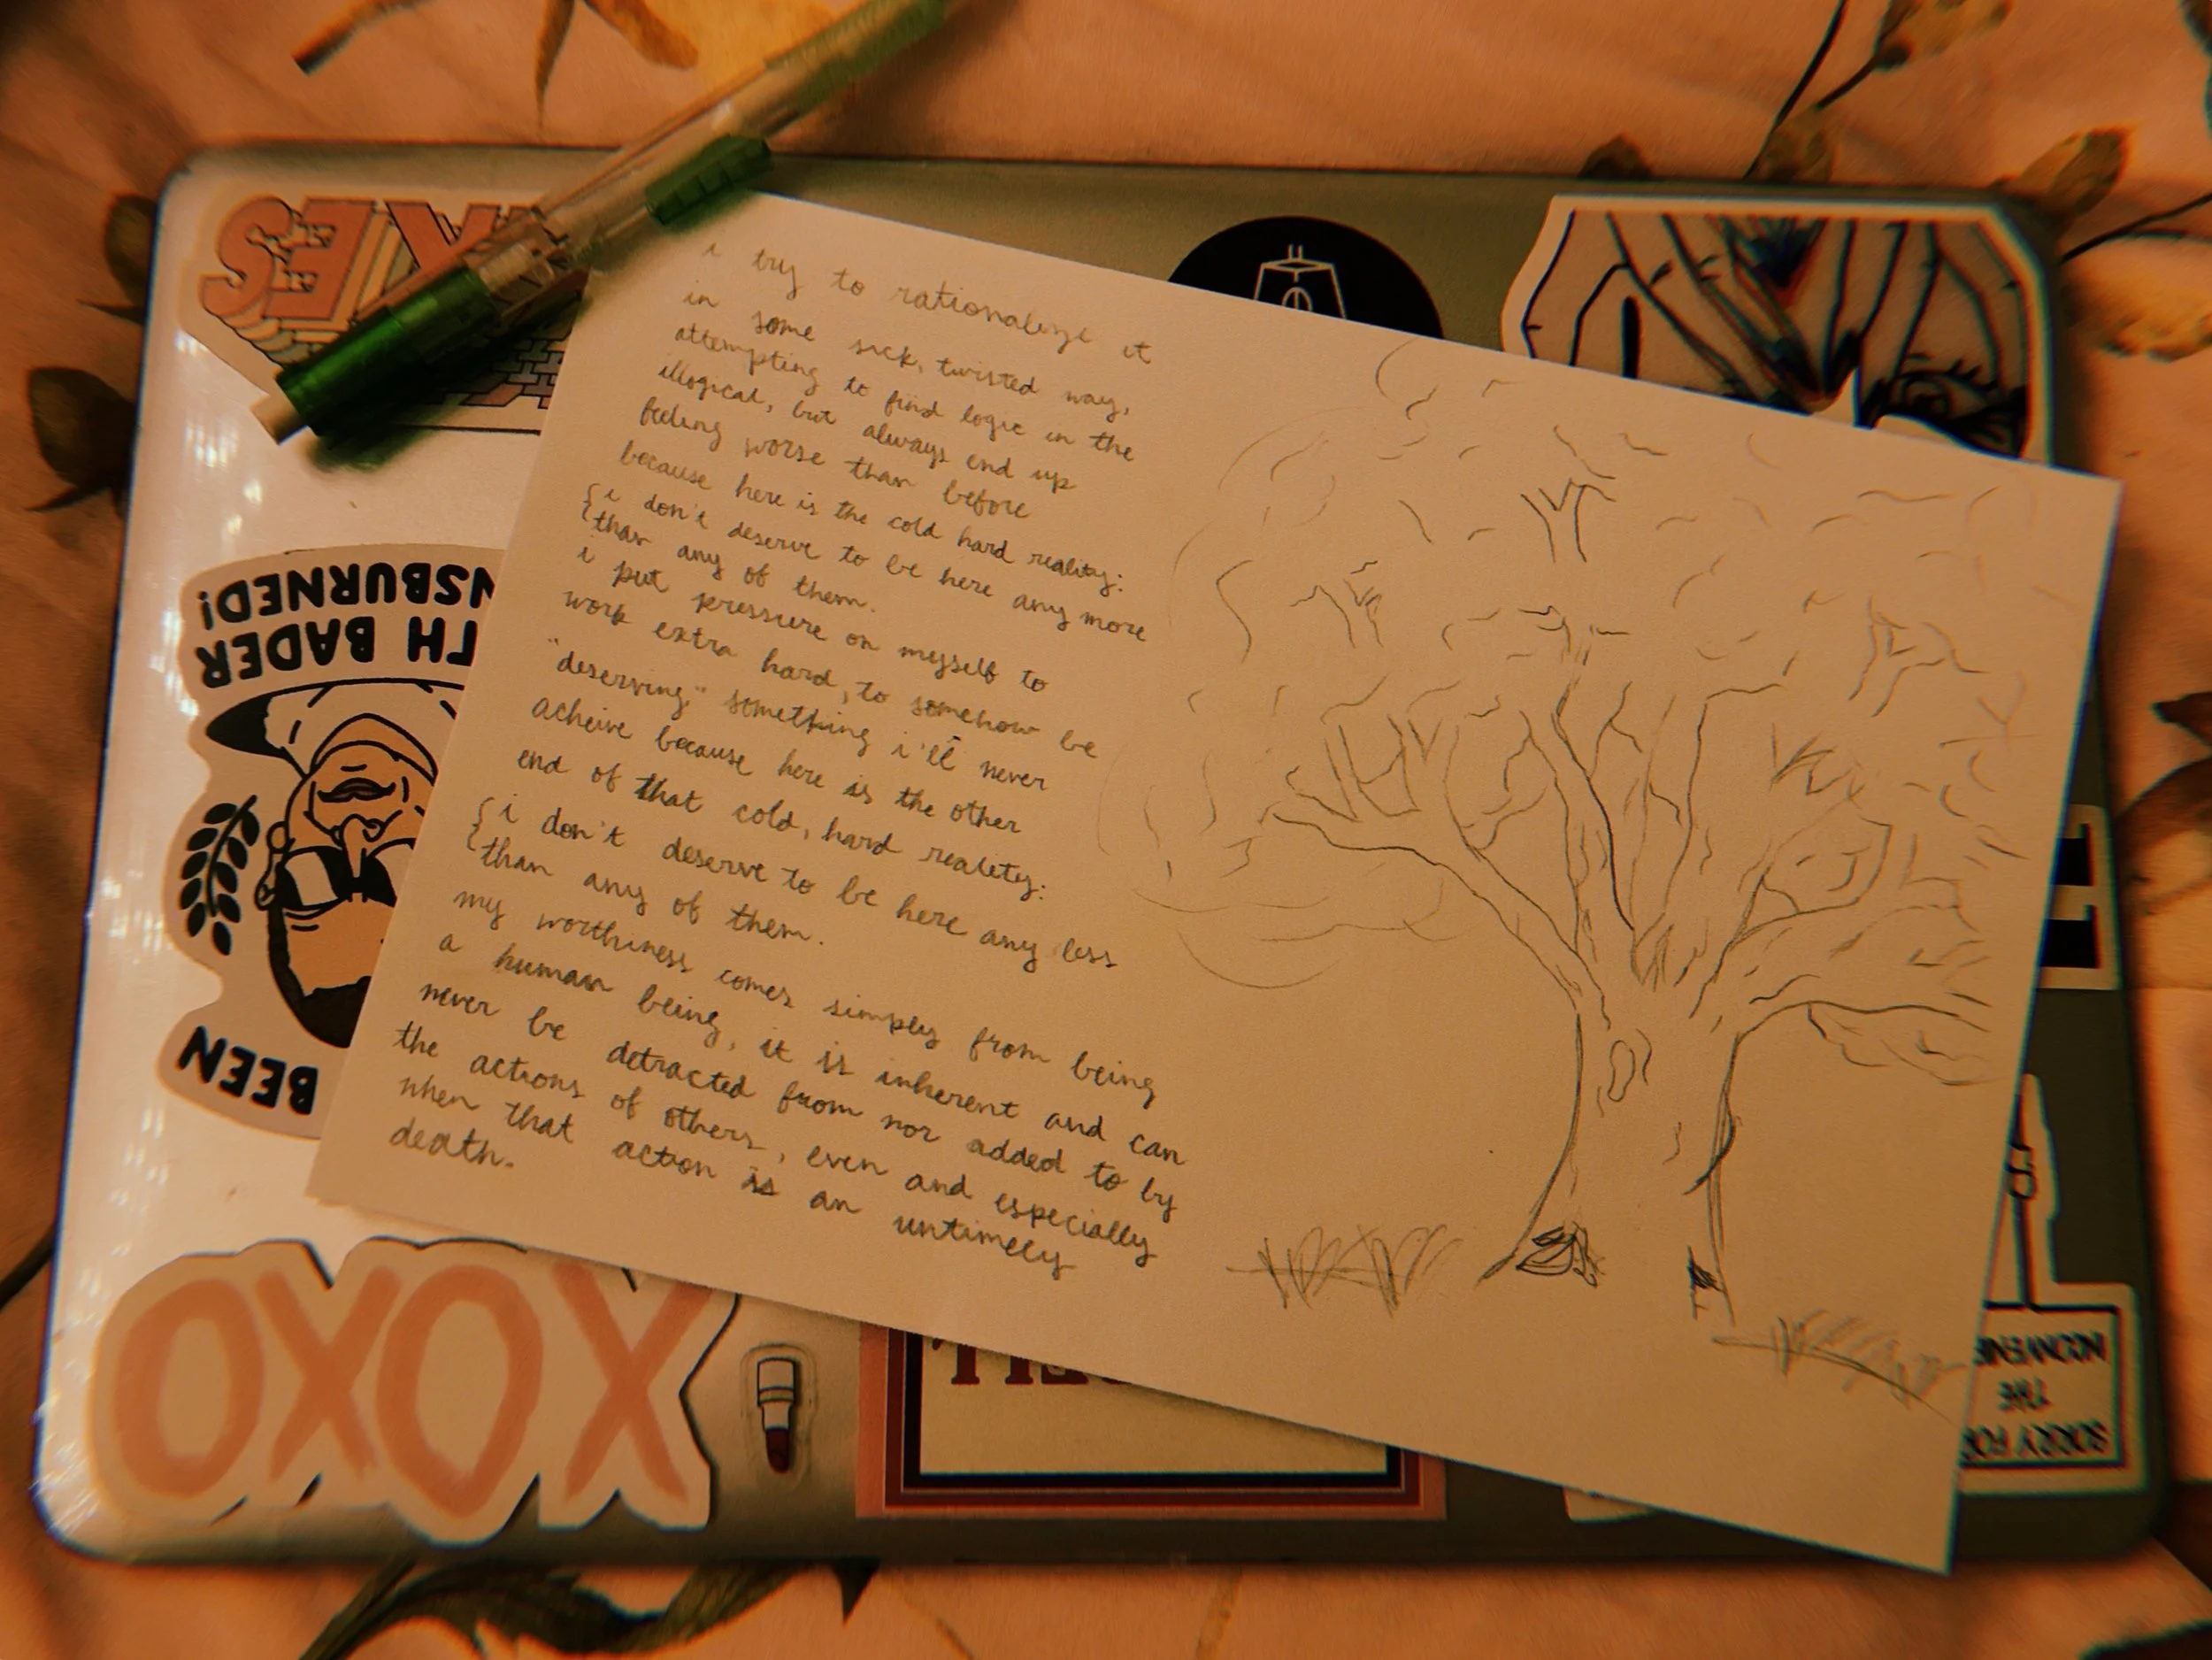 i try to rationalize it
in some sick, twisted way,
attempting to find logic in the
illogical, but always end up
feeling worse than before
because here is the cold hard reality:
i don't deserve to be here any more
than any of them.
i put pressure on myself to
work extra hard, to somehow be
"deserving," something i'll never
acheive because here is the other
end of that cold, hard reality:
i don't deserve to be here any less
than any of them.
my worthiness comes simply from being
a human being, it is inherent and can
never be detracted from nor added to by
the actions of others, even and especially
when that action is an untimely
death.
BEEN
TH BADER
NSBURNED!
XOXO
SORRY FO
THE
INCONVENIE